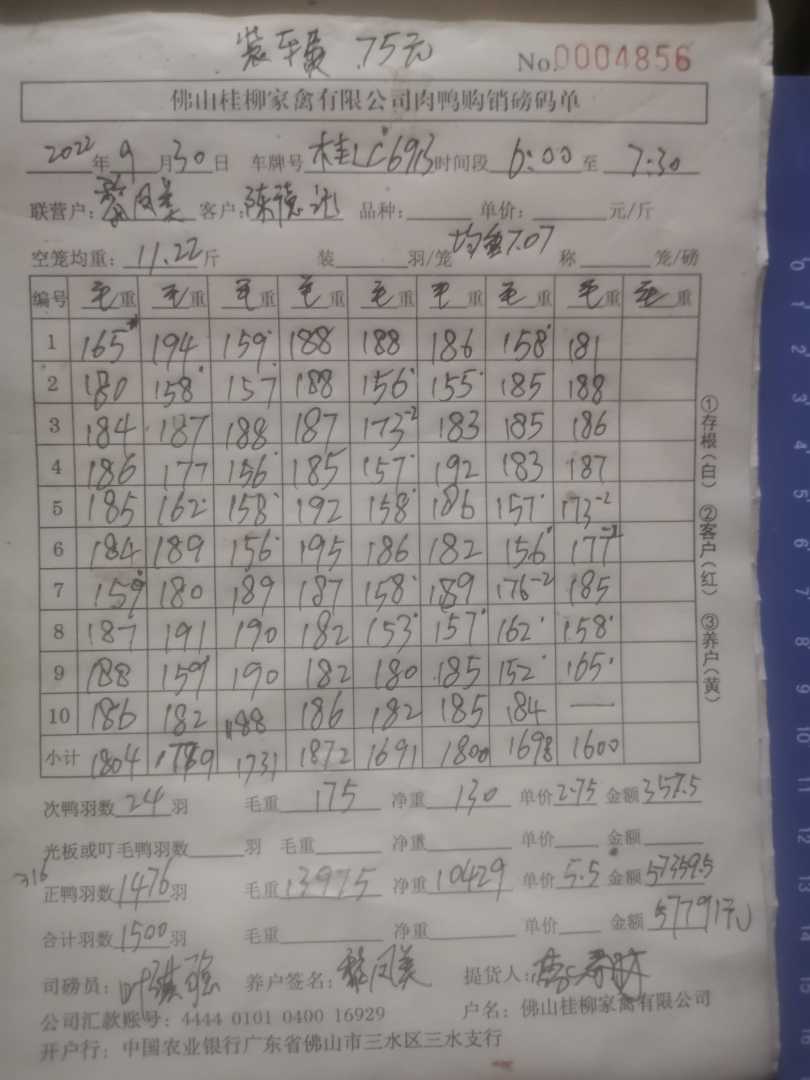 装车费 75元
No.0004856
佛山桂柳家禽有限公司肉鸭购销磅码单
2022年9月30日 车牌号桂LC6913时间段6:00至7:30
联营户:黎凤美 客户:陈 品种: 单价: 元/斤
空笼均重:11.22斤 装 羽/笼 均重7.07 称 笼/磅
编号 毛重 毛重 毛重 毛重 毛重 毛重 毛重 毛重 毛重
1 165 194 159 188 188 186 158 181
2 180 158 157 188 156 155 185 188
3 184 187 188 187 173-2 183 185 186
4 186 177 156 185 157 192 183 187
5 185 162 158 192 158 186 157 173-2
6 184 189 156 195 186 182 156 177-2
7 159 180 189 187 158 189 176-2 185
8 187 191 190 182 153 157 162 158
9 188 159 190 182 180 185 152 165
10 186 182 188 186 182 185 184 —
小计 1804 1779 1731 1872 1691 1800 1698 1600
次鸭羽数24羽 毛重175 净重130 单价2.75 金额357.5
光板或叮毛鸭羽数 羽 毛重 净重 单价 金额
316
正鸭羽数1476羽 毛重13975 净重10429 单价5.5 金额57359.5
合计羽数1500羽 毛重 净重 单价 金额57791元
司磅员:叶 强 养户签名:黎凤美 提货人:
公司汇款账号:4444 0101 0400 16929 户名:佛山桂柳家禽有限公司
开户行:中国农业银行广东省佛山市三水区三水支行
①存根(白) ②客户(红) ③养户(黄)
0 1 2 3 4 5 6 7 8 9 10 11 12 13 14 15 16